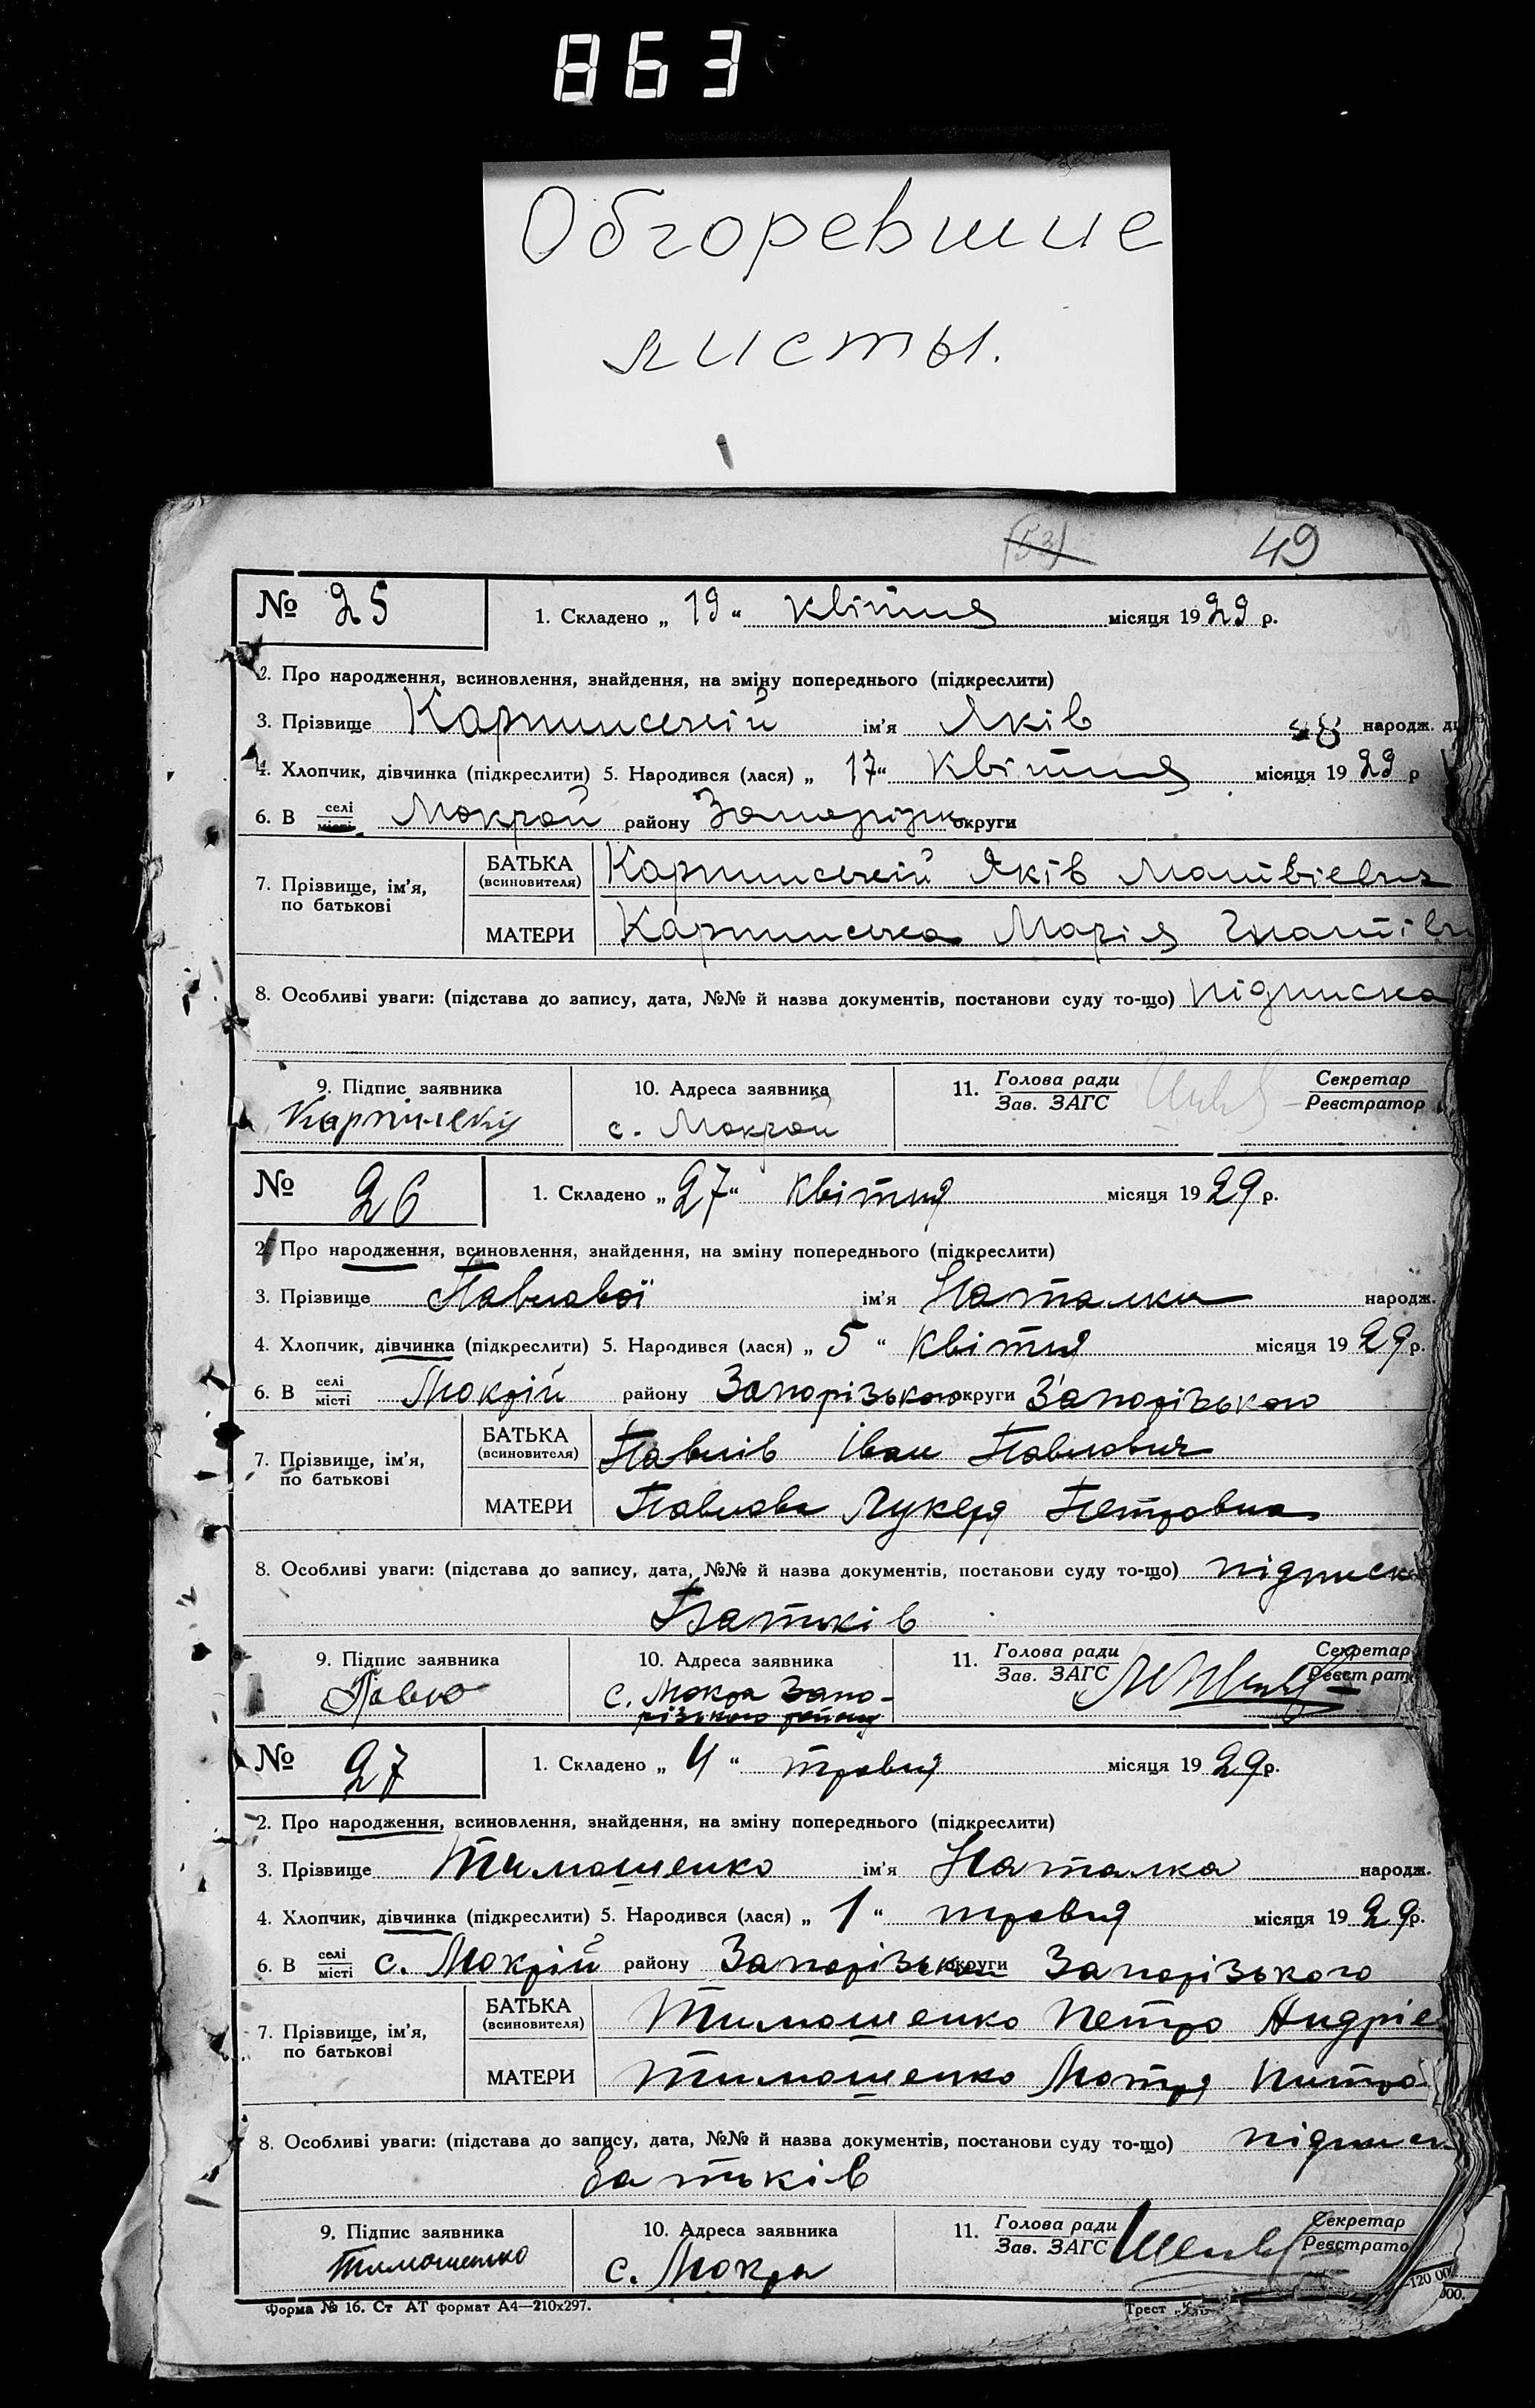 863
Обгоревшие
листы.
(53) 49
№ 25 1. Складено „ 19 “ квітня місяця 1929 р.
2. Про народження, всиновлення, знайдення, на зміну попереднього (підкреслити)
3. Прізвище ім’я Яків народж.
4. Хлопчик, дівчинка (підкреслити) 5. Народився (лася) „ 17 “ квітня місяця 1929 р
6. В селі місті Мокрой району округи
7. Прізвище, ім’я, по батькові БАТЬКА (всиновителя) Яків
МАТЕРИ Марія
8. Особливі уваги: (підстава до запису, дата, №№ й назва документів, постанови суду то-що) підписка
9. Підпис заявника 10. Адреса заявника 11. Голова ради Зав. ЗАГС Секретар Реєстратор
с. Мокрой
№ 26 1. Складено „ 27 “ квітня місяця 1929 р.
2. Про народження, всиновлення, знайдення, на зміну попереднього (підкреслити)
3. Прізвище Павлової ім’я Наталки народж.
4. Хлопчик, дівчинка (підкреслити) 5. Народився (лася) „ 5 “ квітня місяця 1929 р.
6. В селі місті Мокрій району Запорізького округи Запорізького
7. Прізвище, ім’я, по батькові БАТЬКА (всиновителя) Павлів Іван Павлович
МАТЕРИ Павлова Лукеря Петровна
8. Особливі уваги: (підстава до запису, дата, №№ й назва документів, постанови суду то-що) підписк
Батьків
9. Підпис заявника 10. Адреса заявника 11. Голова ради Зав. ЗАГС Секретар
с. Мокра Запо-
різького району
№ 27 1. Складено „ 4 “ травня місяця 1929 р.
2. Про народження, всиновлення, знайдення, на зміну попереднього (підкреслити)
3. Прізвище Тимошенко ім’я Наталка народж.
4. Хлопчик, дівчинка (підкреслити) 5. Народився (лася) „ 1 “ травня місяця 1929 р.
6. В селі місті с. Мокрій району округи Запорізького
7. Прізвище, ім’я, по батькові БАТЬКА (всиновителя) Тимошенко Петро Андріє
МАТЕРИ Тимошенко Мотря
8. Особливі уваги: (підстава до запису, дата, №№ й назва документів, постанови суду то-що)
батьків
9. Підпис заявника 10. Адреса заявника 11. Голова ради Зав. ЗАГС Секретар Реєстрато
Тимошенко с. Мокра
Форма № 16. Ст АТ формат А4—210х297. Трест